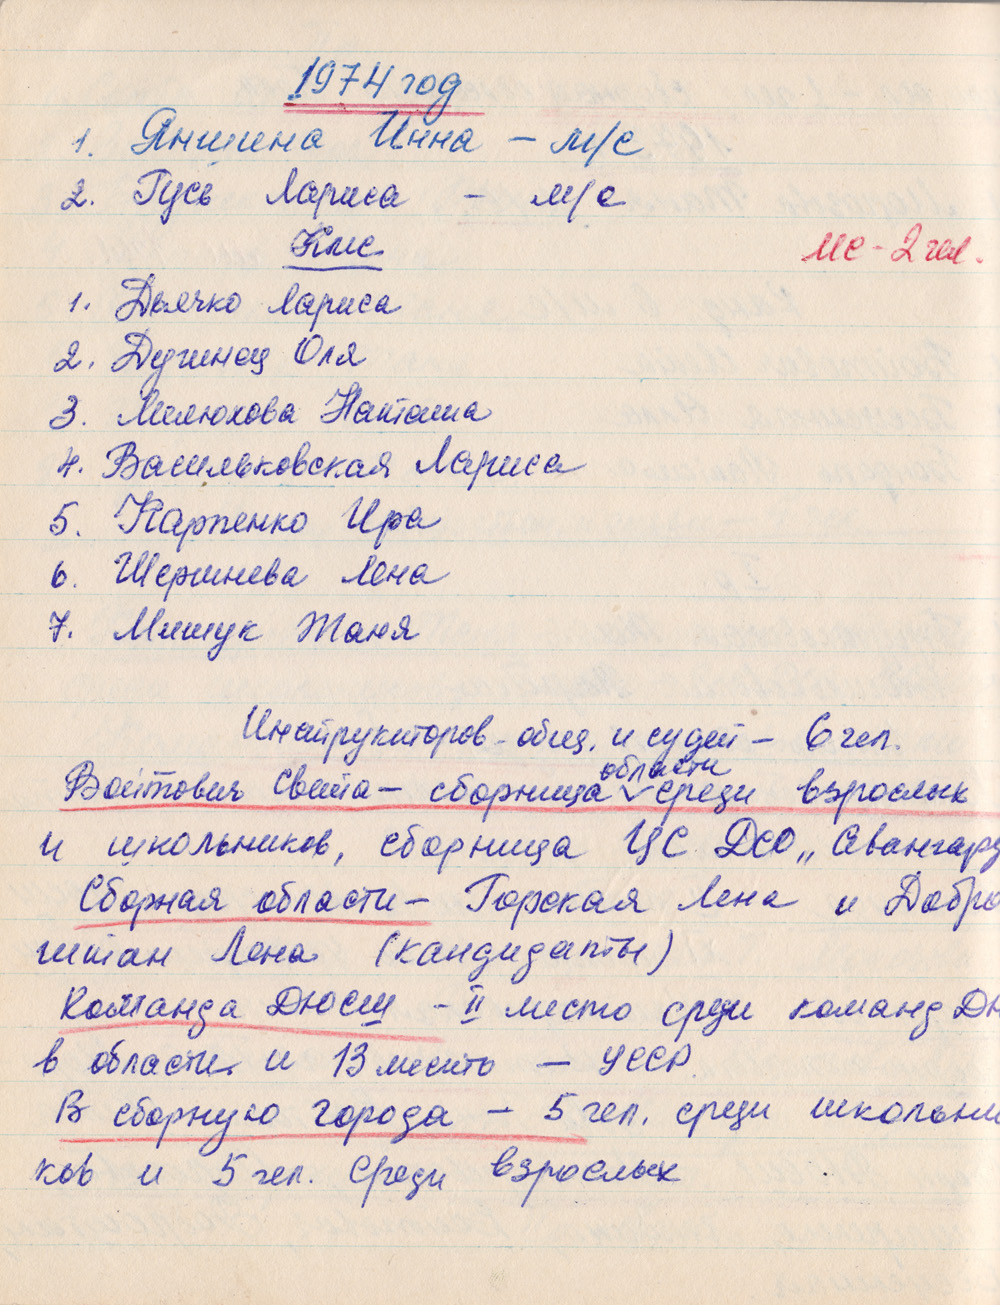 1974 год
1. Яншина Инна – м/с
2. Гусь Лариса – м/с
Кмс
мс - 2 чел.
1. Дьячко Лариса
2. Дугинец Оля
3. Милюхова Наташа
4. Васильковская Лариса
5. Карпенко Ира
6. Шершнева Лена
7. Мишук Жаня
Инструкторов-общ. и судей – 6 чел.
области
Войтович Света – сборница среди взрослых
и школьников, сборница ЦС ДСО „Авангард
Сборная области – Горская Лена и Добро
штан Лена (кандидаты)
Команда ДЮСШ – II место среди команд ДЮ
в области и 13 место – УССР
В сборную города – 5 чел. среди школьни
ков и 5 чел. среди взрослых